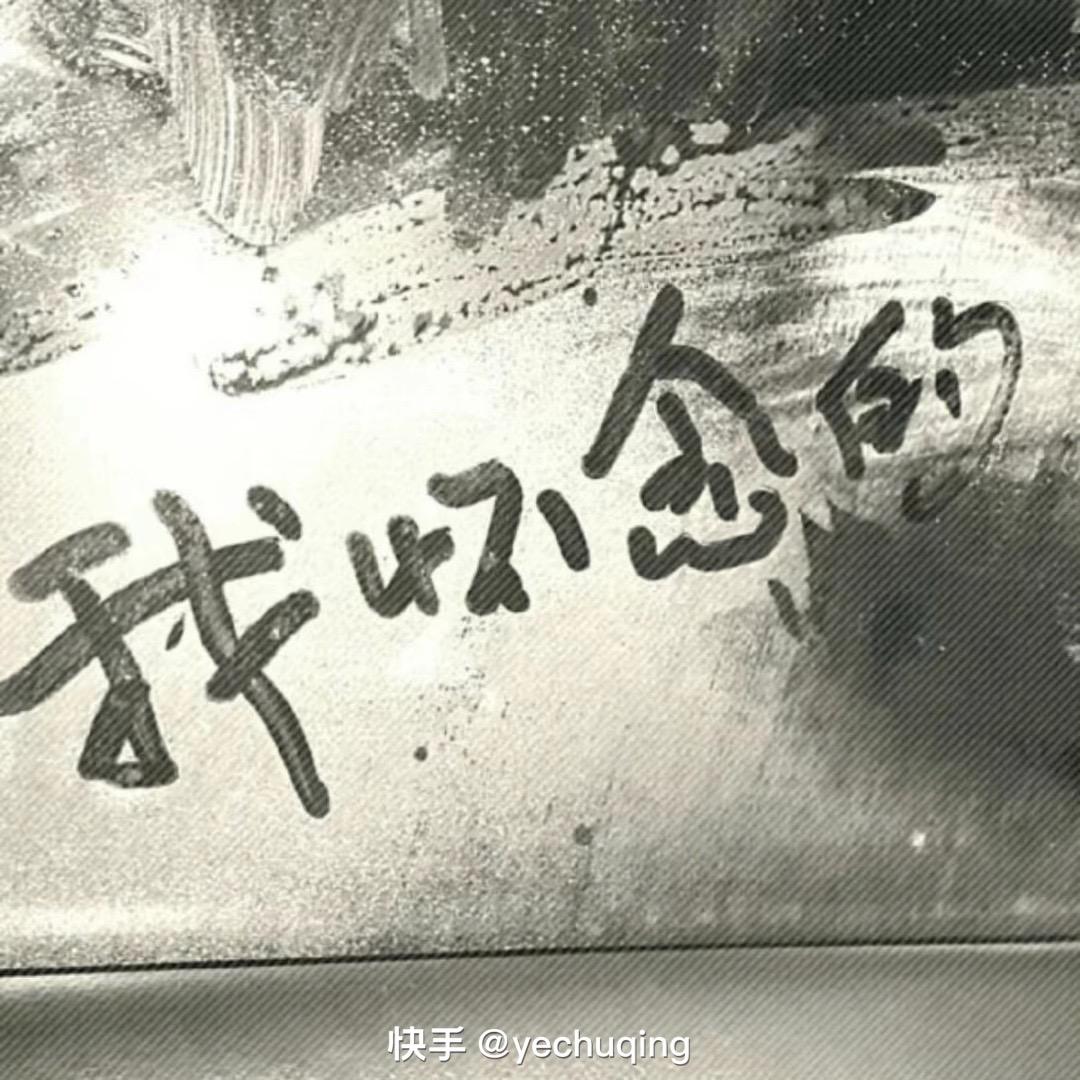 我怀念的
快手 @yechuqing